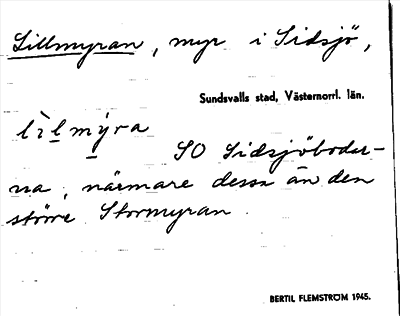 Lillmyran, myr i Sidsjö,
Sundsvalls stad, Västernorrl. län.
lìlmýra
SO Sidsjöbodar-
na, närmare dessa än den
större Stormyran.
BERTIL FLEMSTRÖM 1945.